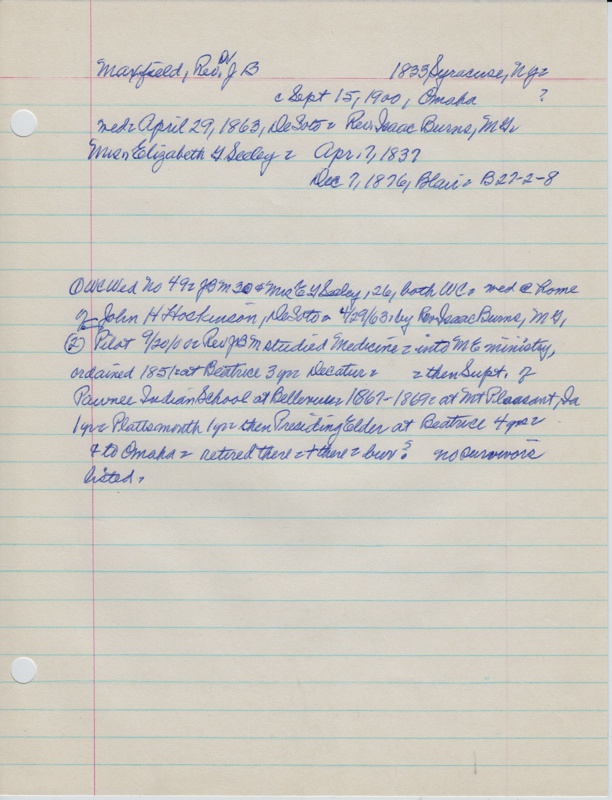 Maxfield, Rev. Dr J B 1833 Syracuse, Ny =
c Sept 15, 1900, Omaha ?
med = April 29, 1863, DeSoto = Rev. Isaac Burns, M G.
Miss Elizabeth Y Seeley = Apr. 7, 1837
Dec 7, 1876, Blair = B27-2-8
① WC Wed No 49 = J B M 30 + Miss E Y Seeley, 26, both WC = med @ home
of John H Hoskinson, DeSoto = 4/29/63 = by Rev Isaac Burns, M G,
② Pilot 9/20/00 = Rev J B M studied Medicine = into M E ministry,
ordained 1851 = at Beatrice 3 yr = Decatur = = then Supt. of
Pawnee Indian School at Bellevue = 1867-1869 = at Mt Pleasant, Ia
1 yr = Plattsmouth 1 yr = then Presiding Elder at Beatrice 4 yrs =
+ to Omaha = retired there = + there = bur ? no survivors
listed.